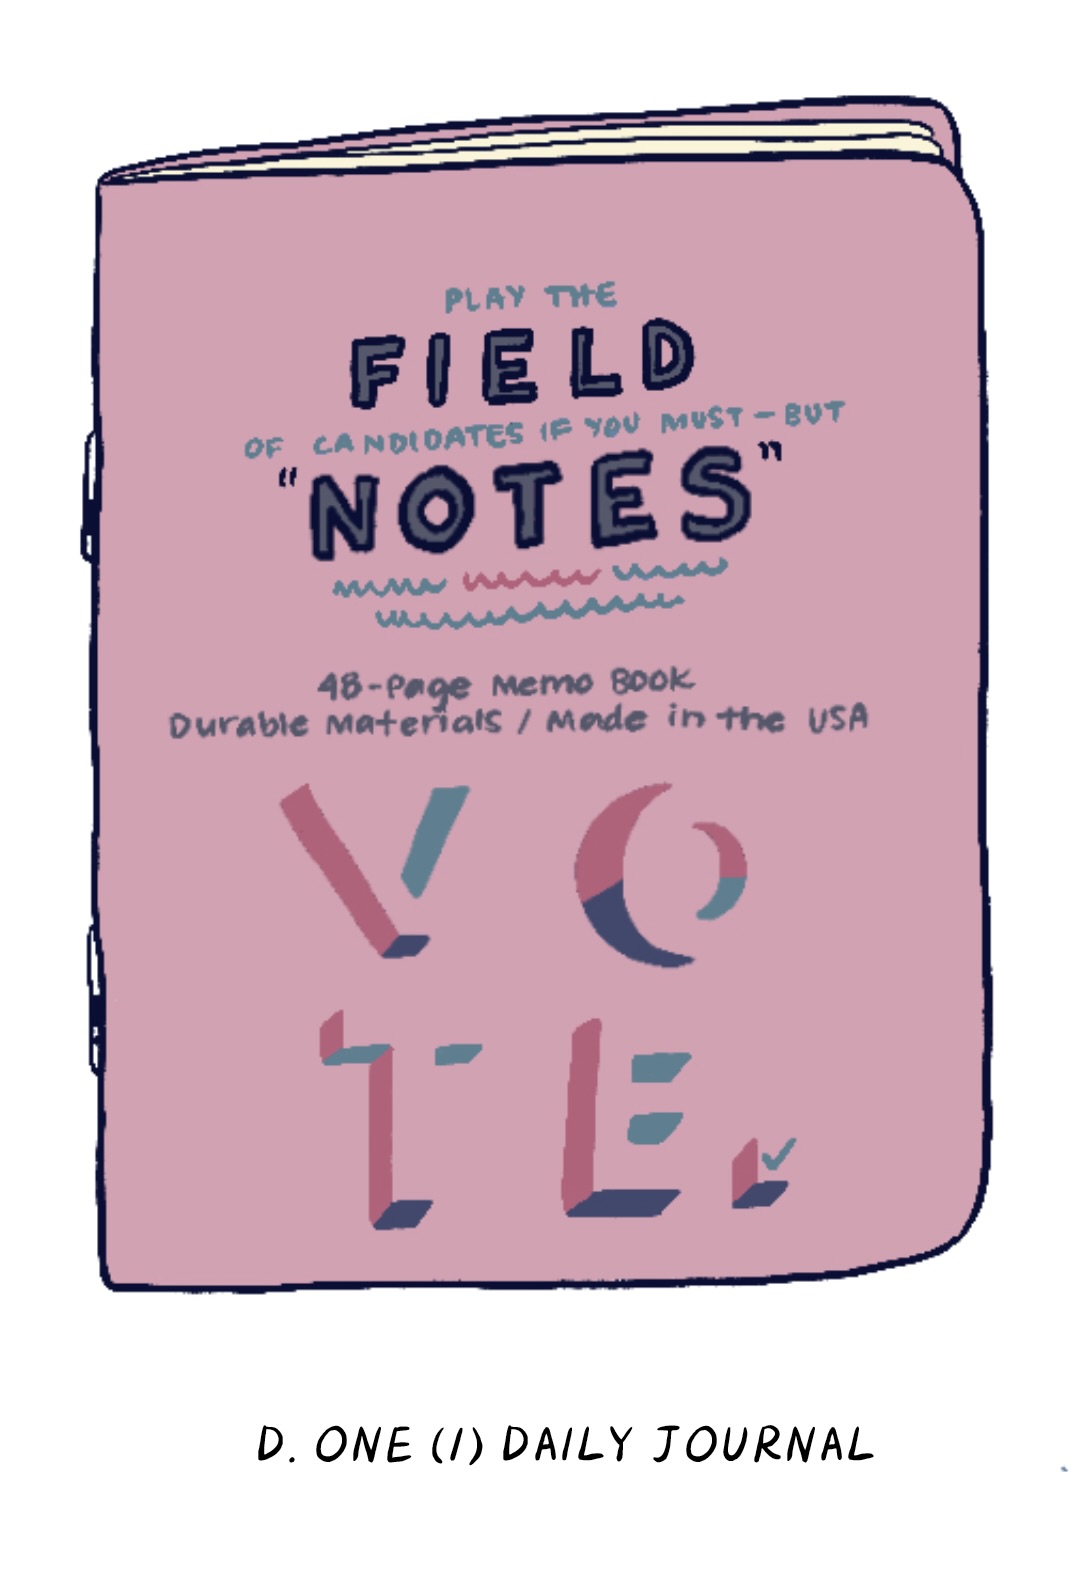 PLAY THE
FIELD
OF CANDIDATES IF YOU MUST — BUT
"NOTES"
48-Page Memo Book
Durable Materials / Made in the USA
VO
TE.
D. ONE (1) DAILY JOURNAL